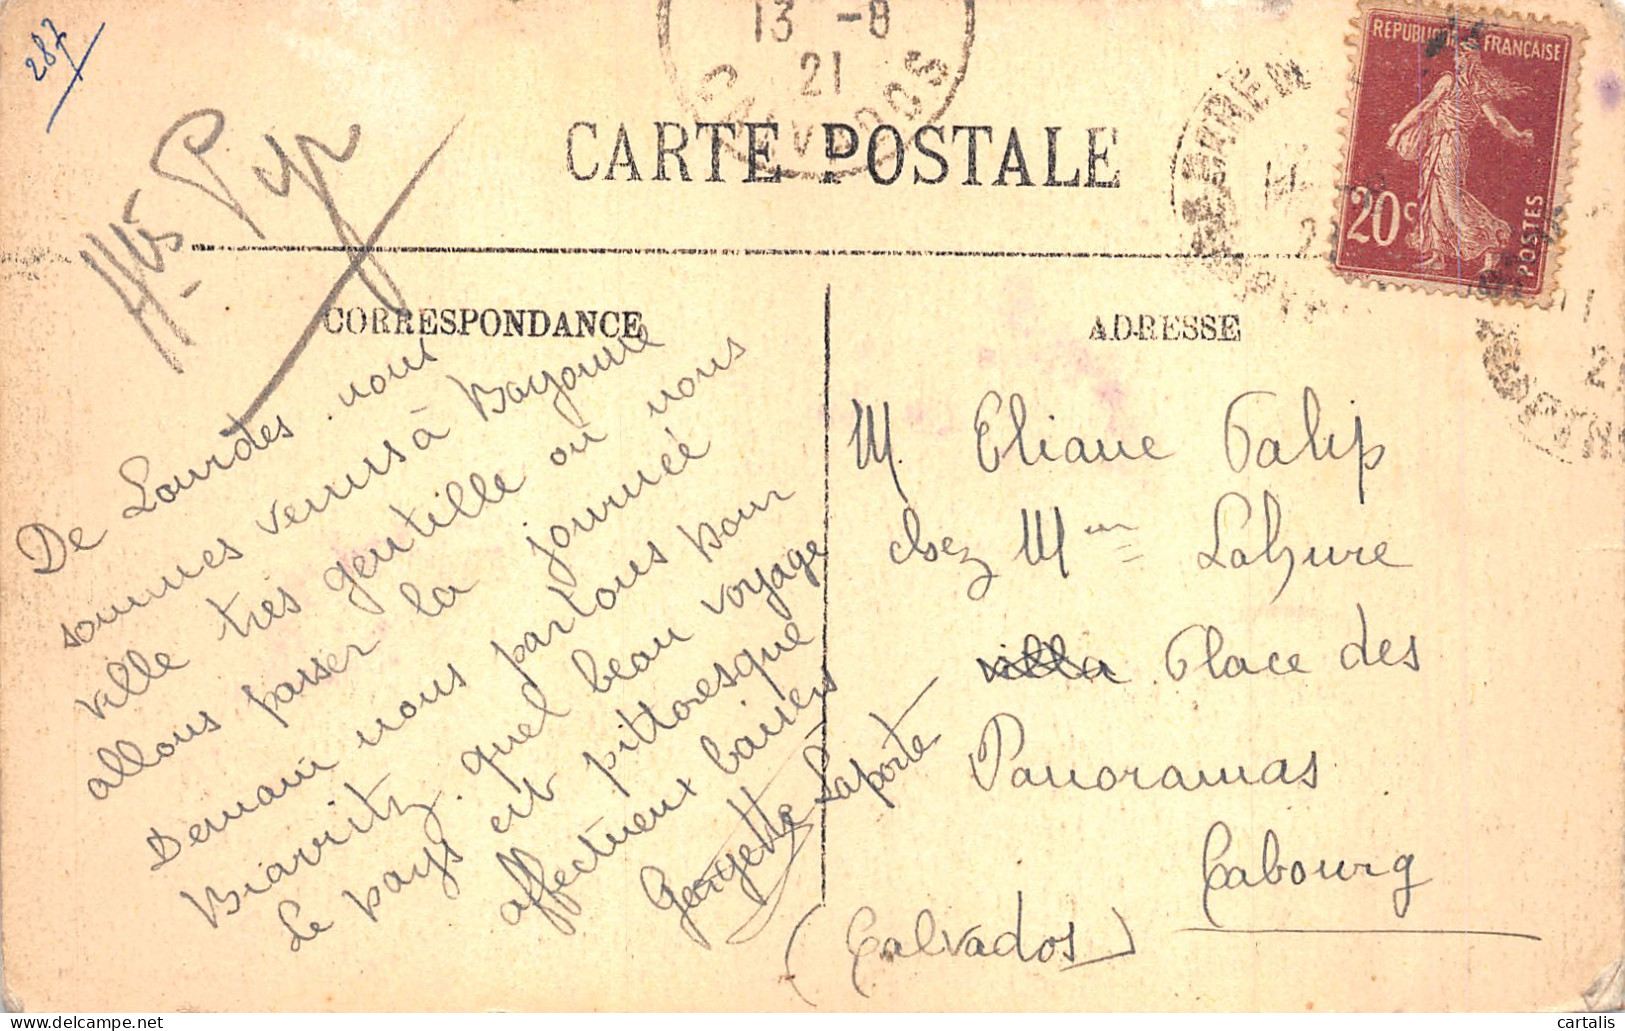 287
13 -8
21
CALVADOS
REPUBLIQUE FRANÇAISE
20c
POSTES
Htes Pyr
CARTE POSTALE
CORRESPONDANCE
ADRESSE
De Lourdes nous
sommes venus à Bayonne
ville très gentille où nous
allons passer la journée
Demain nous partons pour
Biarritz. quel beau voyage
Le pays est pittoresque
affectueux baisers
Georgette Laporte
M. Eliane Galip
chez Mme Lahure
villa Place des
Panoramas
Cabourg
(Calvados)
cartalis